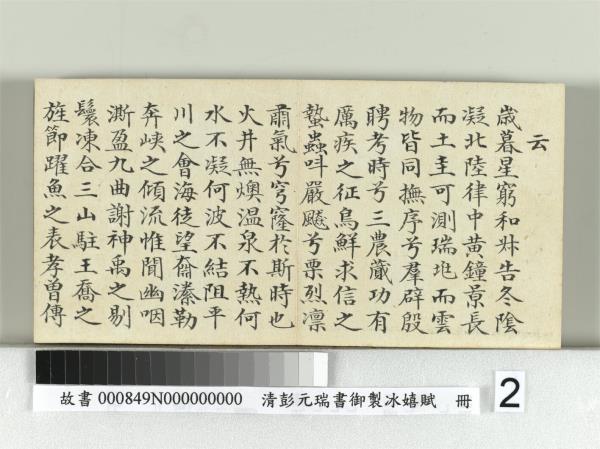 云
歲暮星窮和叔告冬陰
凝北陸律中黃鐘景長
而土圭可測瑞兆而雲
物皆同撫序兮羣辟殷
聘考時兮三農蕆功有
厲疾之征鳥鮮求信之
蟄蟲叫嚴飈兮栗烈凜
肅氣兮穹窿於斯時也
火井無燠溫泉不熱何
水不凝何波不結阻平
川之會海徒望奫㶗勒
奔峽之傾流惟聞幽咽
澌盈九曲謝神禹之剔
鬟凍合三山駐王喬之
旌節躍魚之表孝曾傳
故書 000849N000000000 清彭元瑞書御製冰嬉賦 冊
2